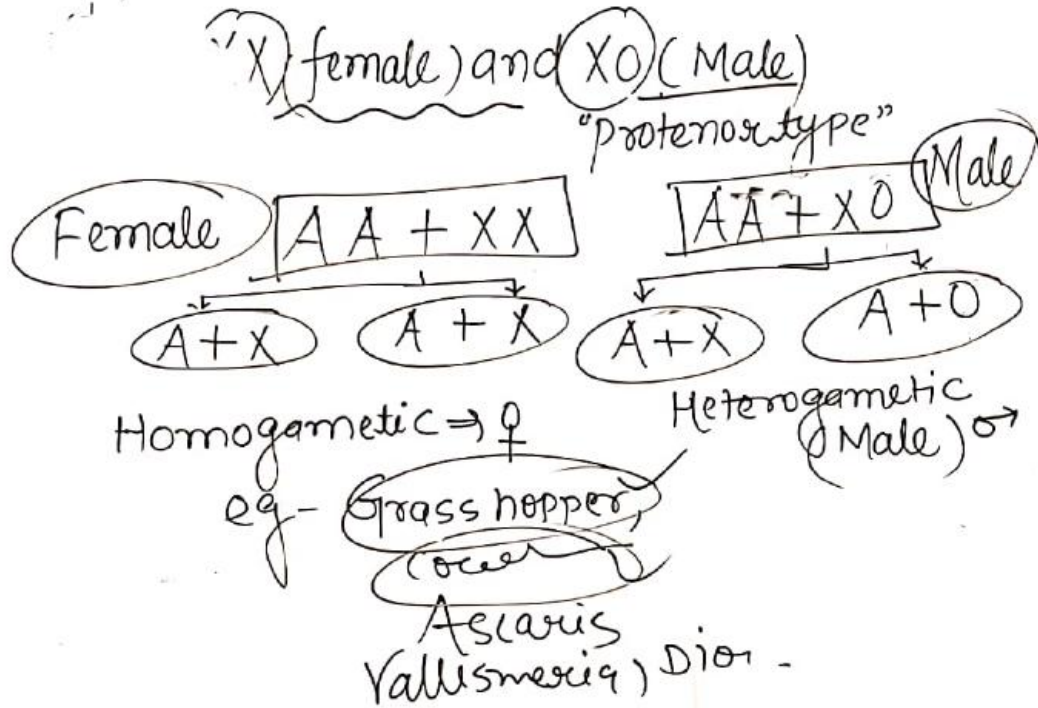 "X (female) and XO (Male)
"Protenor type"
Female AA + XX AA + XO Male
A + X A + X A + X A + O
Homogametic ⇒ ♀ Heterogametic
(Male) ♂
eg - Grass hopper,
Ascaris
Vallismeria,